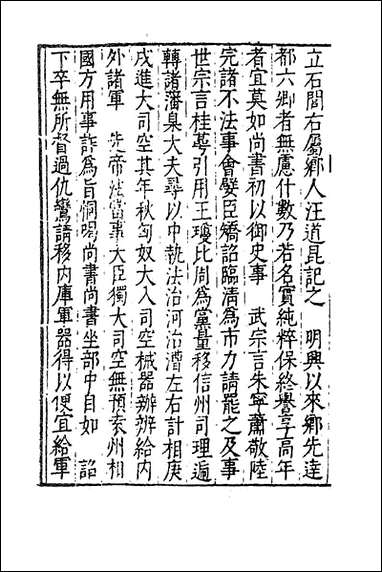 立石閭右屬鄉人汪道昆記之　明興以來鄉先達
都六卿者無慮什數乃若名實純粹保終譽享高年
者宜莫如尚書初以御史事　武宗言朱寧蕭敬陸
完諸不法事會嬖臣矯詔臨清為市力請罷之及事
世宗言桂萼引用王瓊比周為黨量移信州司理遍
轉諸藩臬大夫尋以中執法治河治漕左右計相庚
戌進大司空其年秋匈奴大入司空械器辦辦給内
外諸軍　先帝法當
大臣獨大司空無預袁州相
國方用事詐為旨恫喝尚書尚書坐部中自如　詔
下卒無所督過仇鸞請移内庫軍器得以便宜給軍